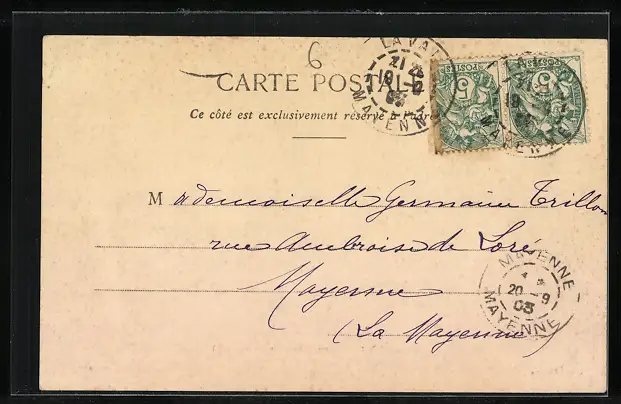 6
CARTE POSTALE
Ce côté est exclusivement réservé à l'adre
LAVAL
MAYENNE
Mademoiselle Germaine Trillon
rue Ambroise de Loré
Mayenne
(La Mayenne)
MAYENNE
20 - 9
03
MAYENNE